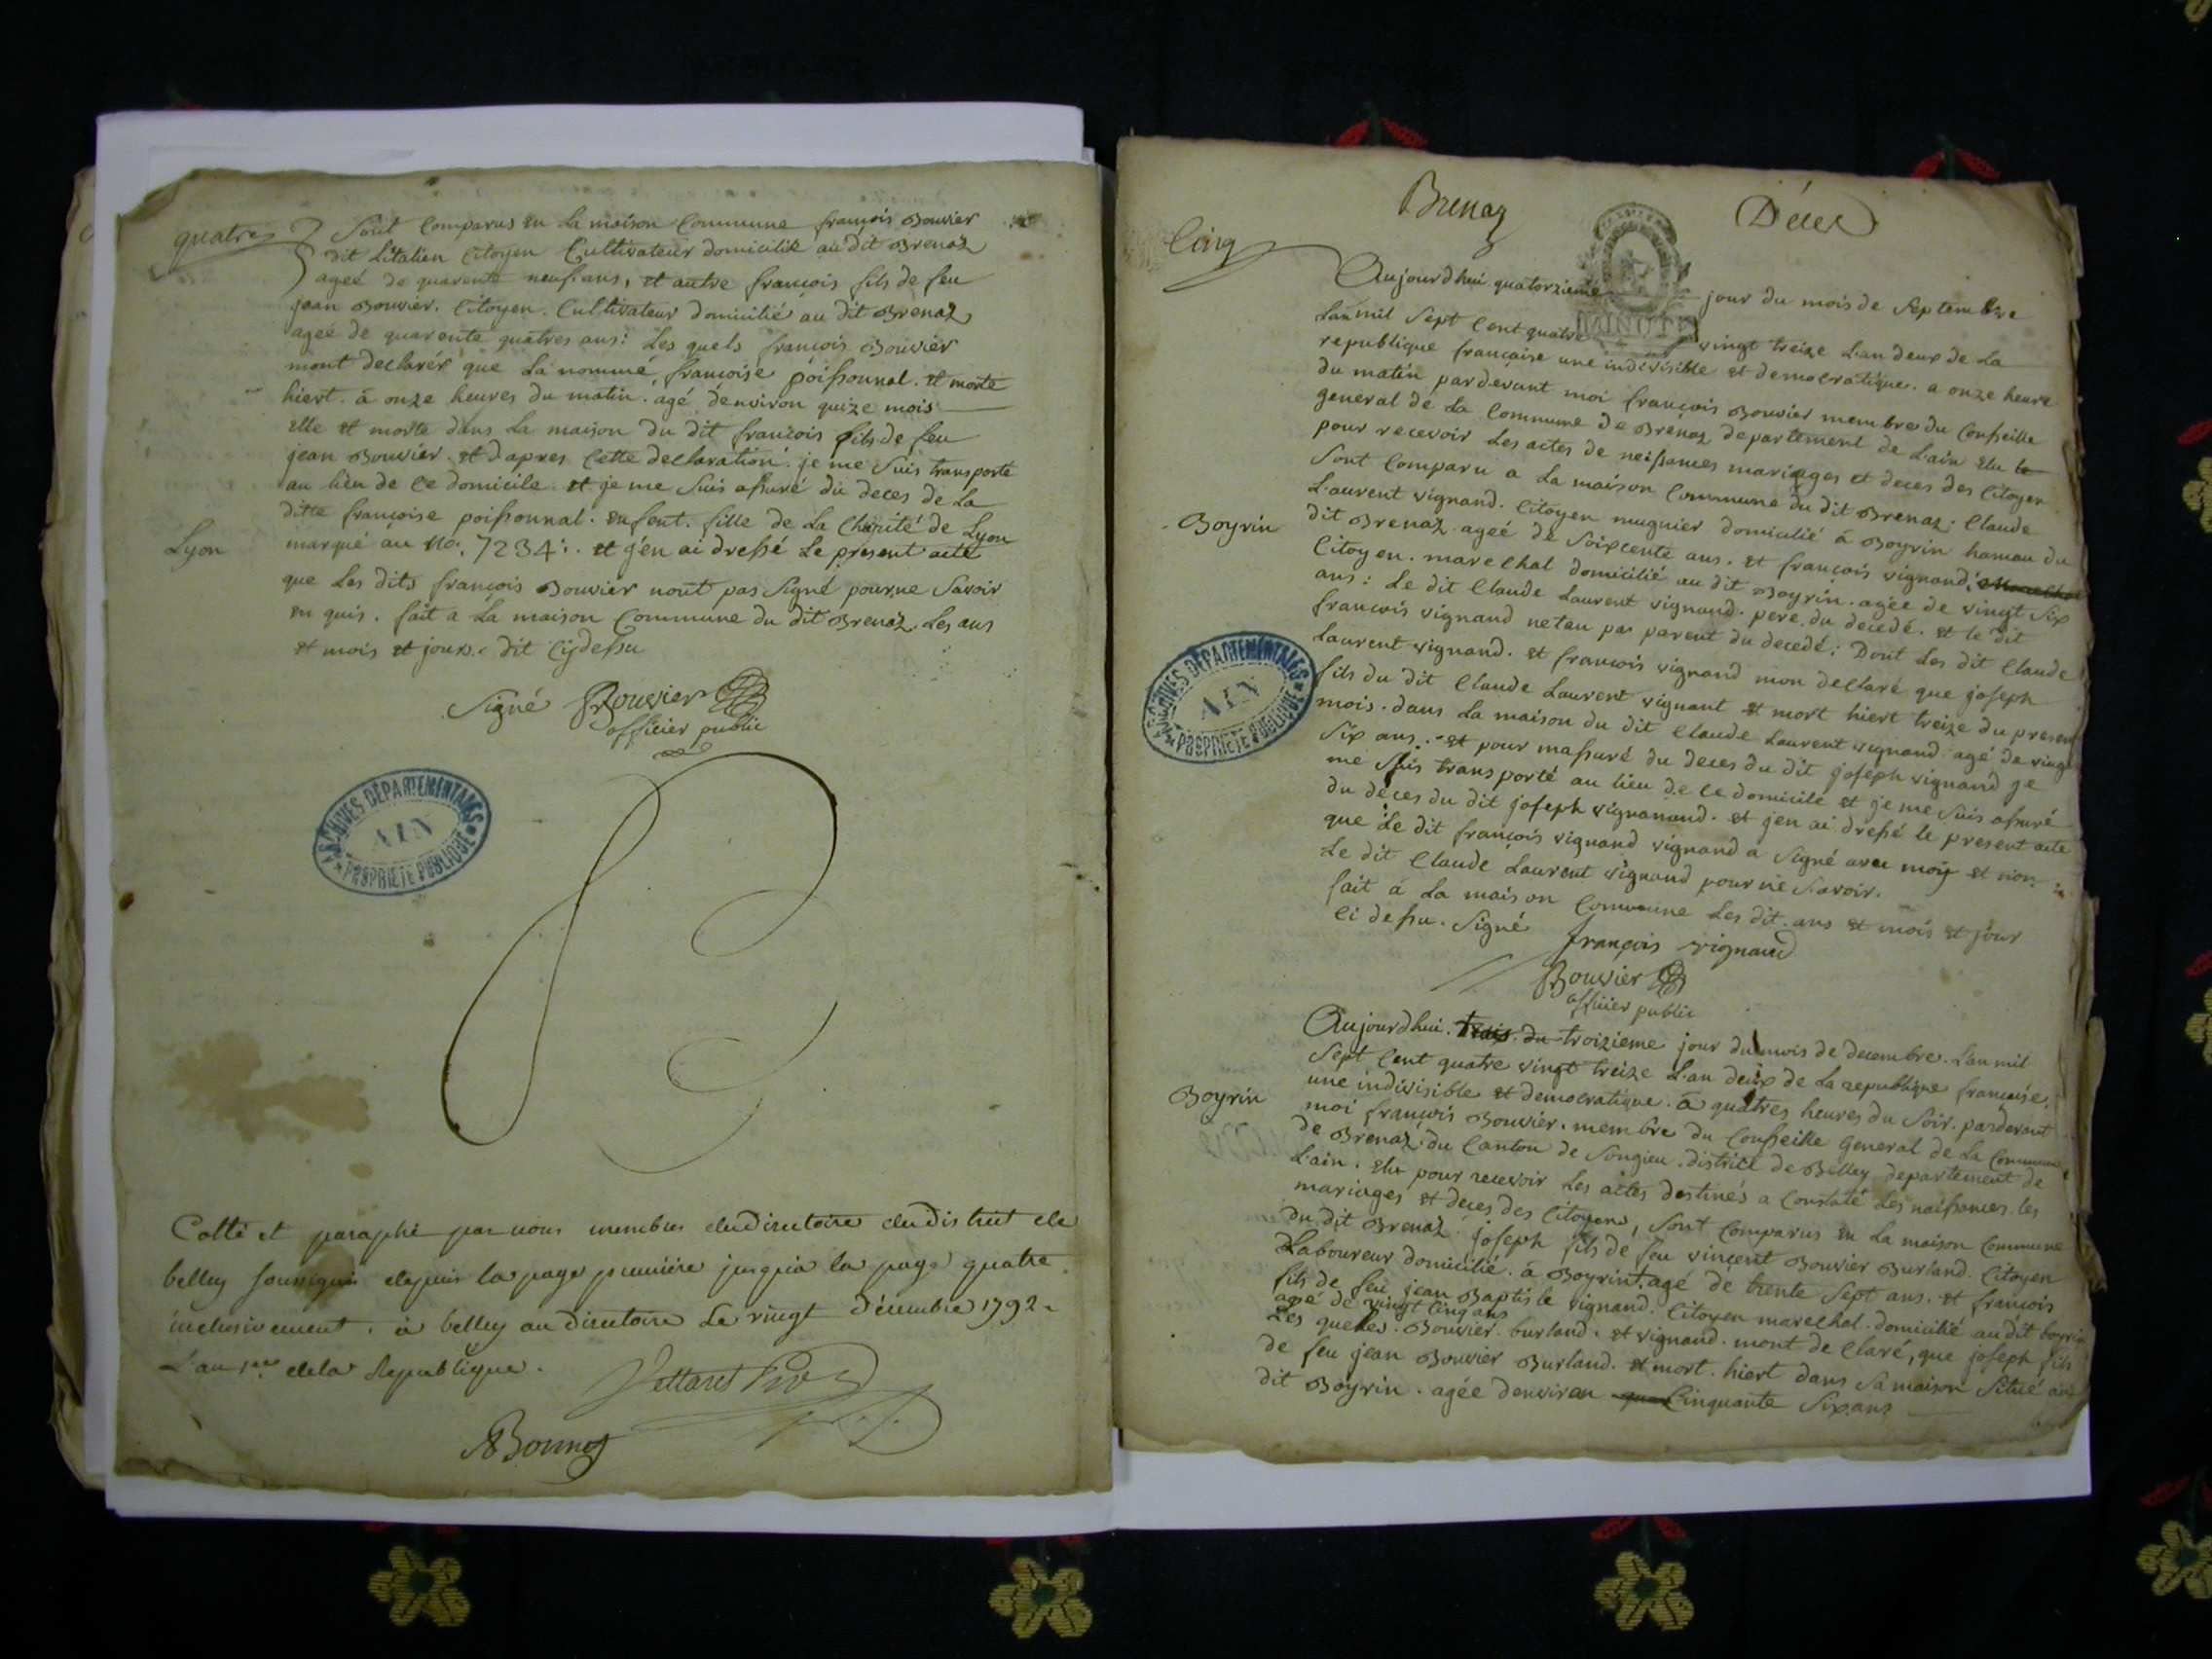 quatres
Sont Comparus en La maison Commune françois Bouvier
dit L'italien Citoyen Cultivateur domicilié au dit Brenaz
ageé de quarente neuf ans, et autre françois fils de feu
jean Bouvier. Citoyen. Cultivateur domicilié au dit Brenaz
ageé de quarente quatres ans: Les quels françois Bouvier
mont declarés que La nommé françoise poissonnal. et morte
hiert. à onze heures du matin. agé d'environ quize mois
elle et morte dans La maison du dit françois fils de feu
jean Bouvier. et d'apres Cette declaration. je me suis transporte
au lieu de Ce domicile. et je me suis assuré du deces de La
ditte françoise poissonnal. enfent. fille de La Charité de Lyon
Lyon
marqué au No. 7234. et j'en ai dressé Le present acte
que Les dits françois Bouvier nont pas Signé pour ne Savoir
en quis. fait a La maison Commune du dit Brenaz. Les ans
et mois et jours. dit Cydessu
Signé Bouvier
officier public
ARCHIVES DÉPARTEMENTALES
AIN
PROPRIÉTÉ PUBLIQUE
Cotté et paraphé par nous membres du directoire du district de
belley soussignés depuis la page premiere jusqu'a la page quatre
inclusivement. à belley au directoire Le vingt décembre 1792.
L'an 1er de la Republique.
Brenaz
Déces
Cinq
MINUTE
Aujourdhui quatorzieme jour du mois de Septembre
Lan mil Sept Cent quatre vingt treize L'an deux de La
republique française une indivisible et democratique. a onze heure
du matin pardevant moi françois Bouvier membre du Conseille
general de La Commune de Brenaz departement de L'ain elu
pour recevoir Les actes de neissances mariages et deces des Citoyen
Sont Comparu a La maison Commune du dit Brenaz: Claude
Laurent vignand. Citoyen mugnier domicilié à Boyrin hameau du
Boyrin
dit Brenaz. ageé de Soixcente ans. et françois vignand.
Citoyen. marechal domicilié au dit Boyrin. agée de vingt Six
ans: Le dit Claude Laurent vignand. pere. du decedé. et le dit
françois vignand netan pas parent du decedé: Dont Les dit Claude
Laurent vignand. et françois vignand mon declaré que joseph
fils du dit Claude Laurent vignant et mort hiert treize du present
mois. dans La maison du dit Claude Laurent vignand agé de vingt
Six ans. et pour massuré du deces du dit joseph vignand je
me suis transporté au lieu de Ce domicile et je me suis assuré
du deces du dit joseph vignanand. et j'en ai dressé le present acte
que Le dit françois vignand vignand a Signé avec moy et non
Le dit Claude Laurent vignand pour ne Savoir.
fait à La maison Commune Les dit. ans et mois et jour
Ci dessu. Signé
françois vignand
Bouvier
officier public
ARCHIVES DÉPARTEMENTALES
AIN
PROPRIÉTÉ PUBLIQUE
Aujourdhui. trois du troizieme jour du mois de decembre. L'an mil
Sept Cent quatre vingt treize L'an deux de La republique française.
une indivisible et democratique. à quatres heures du Soir. pardevant
Boyrin
moi françois Bouvier. membre du Conseille General de La Commune
de Brenaz du Canton de Songieu. district de Belley departement de
L'ain. elu pour recevoir Les actes destinés a Constaté Les naissances. les
mariages et deces des Citoyens, Sont Comparus en La maison Commune
du dit Brenaz. joseph fils de feu vincent Bouvier Burland. Citoyen
Laboureur domicilié. à Boyrint. agé de trente Sept ans. et françois
fils de feu jean Baptiste vignand. Citoyen marechal. domicilié au dit boyrin
agé de vingt Cinq ans
Les queles. Bouvier. burland. et vignand. mont de Claré, que joseph fils
de feu jean Bouvier Burland. et mort. hiert dans Sa maison Situé au
dit Boyrin. agée denviron Cinquante Six ans